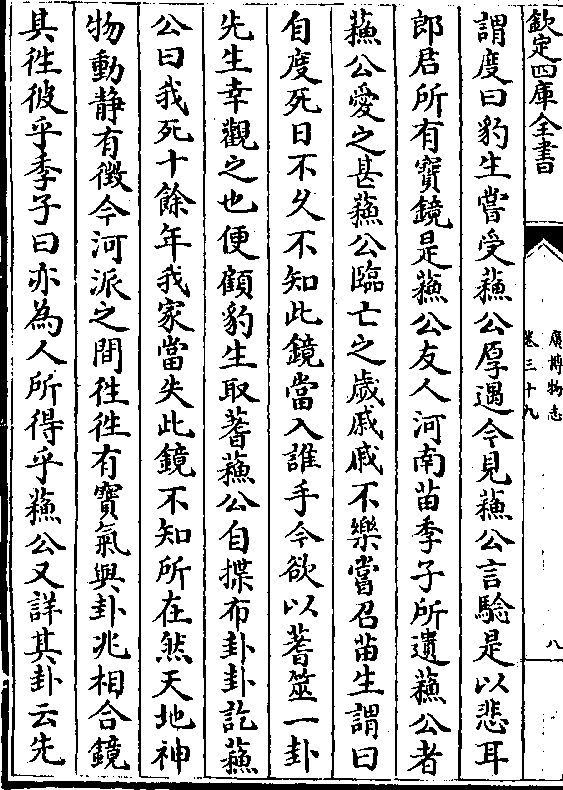 欽定四庫全書
廣博物志
卷三十九
八
謂度曰豹生嘗受蘓公厚遇今見蘓公言驗是以悲耳
郎君所有寳鏡是蘓公友人河南苗季子所遺蘓公者
蘓公愛之甚蘓公臨亡之歲戚戚不樂嘗召苗生謂曰
自度死日不久不知此鏡當入誰手今欲以蓍筮一卦
先生幸觀之也便顧豹生取蓍蘓公自揲布卦卦訖蘓
公曰我死十餘年我家當失此鏡不知所在然天地神
物動静有徴今河派之間徃徃有寳氣與卦兆相合鏡
其徃彼乎季子曰亦為人所得乎蘓公又詳其卦云先